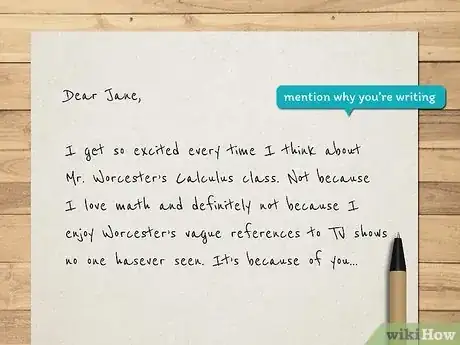 Dear Jane,
mention why you're writing
I get so excited every time I think about
Mr. Worcester's Calculus class. Not because
I love math and definitely not because I
enjoy Worcester's vague references to TV shows
no one hasever seen. It's because of you...
wikiHow